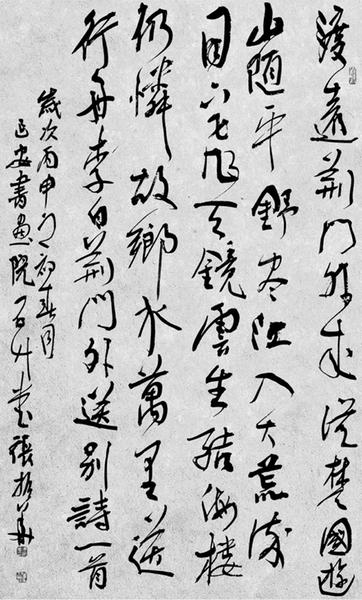 渡遠荊門外來從楚國遊
山隨平野盡江入大荒流
月下飛天鏡雲生結海樓
仍憐故鄉水萬里送
行舟李白荊門外送別詩一首
歲次丙申初春月
延安書畫院張振華